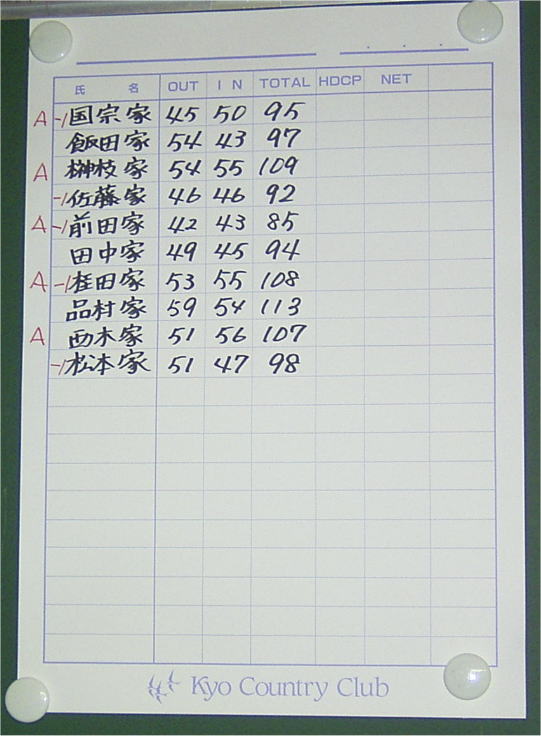 氏 名 OUT IN TOTAL HDCP NET
A -1 国宗家 45 50 95
飯田家 54 43 97
A 榊枝家 54 55 109
-1 佐藤家 46 46 92
A -1 前田家 42 43 85
田中家 49 45 94
A -1 桂田家 53 55 108
品村家 59 54 113
A 西木家 51 56 107
-1 松本家 51 47 98
Kyo Country Club